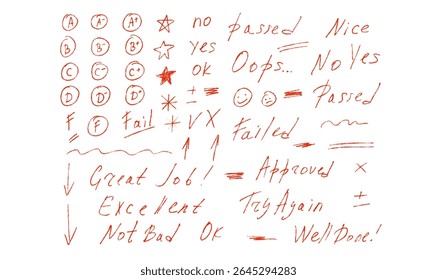 A A- A+ no passed Nice
B B- B+ yes Oops... No Yes
C C- C+ OK
D D- D+ ± Passed
F F Fail V X Failed
Great Job! Approved x
Excellent Try Again ±
Not Bad OK Well Done!
shutterstock
IMAGE ID: 2645294283
www.shutterstock.com